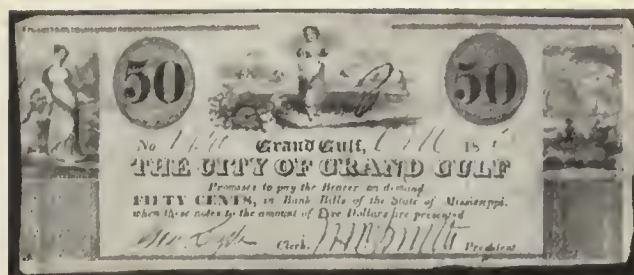 50 50
No Grand Gulf, 18
THE CITY OF GRAND GULF
Promises to pay the Bearer on demand
FIFTY CENTS, in Bank Bills of the State of Mississippi,
when these notes to the amount of Five Dollars are presented
Clerk. President